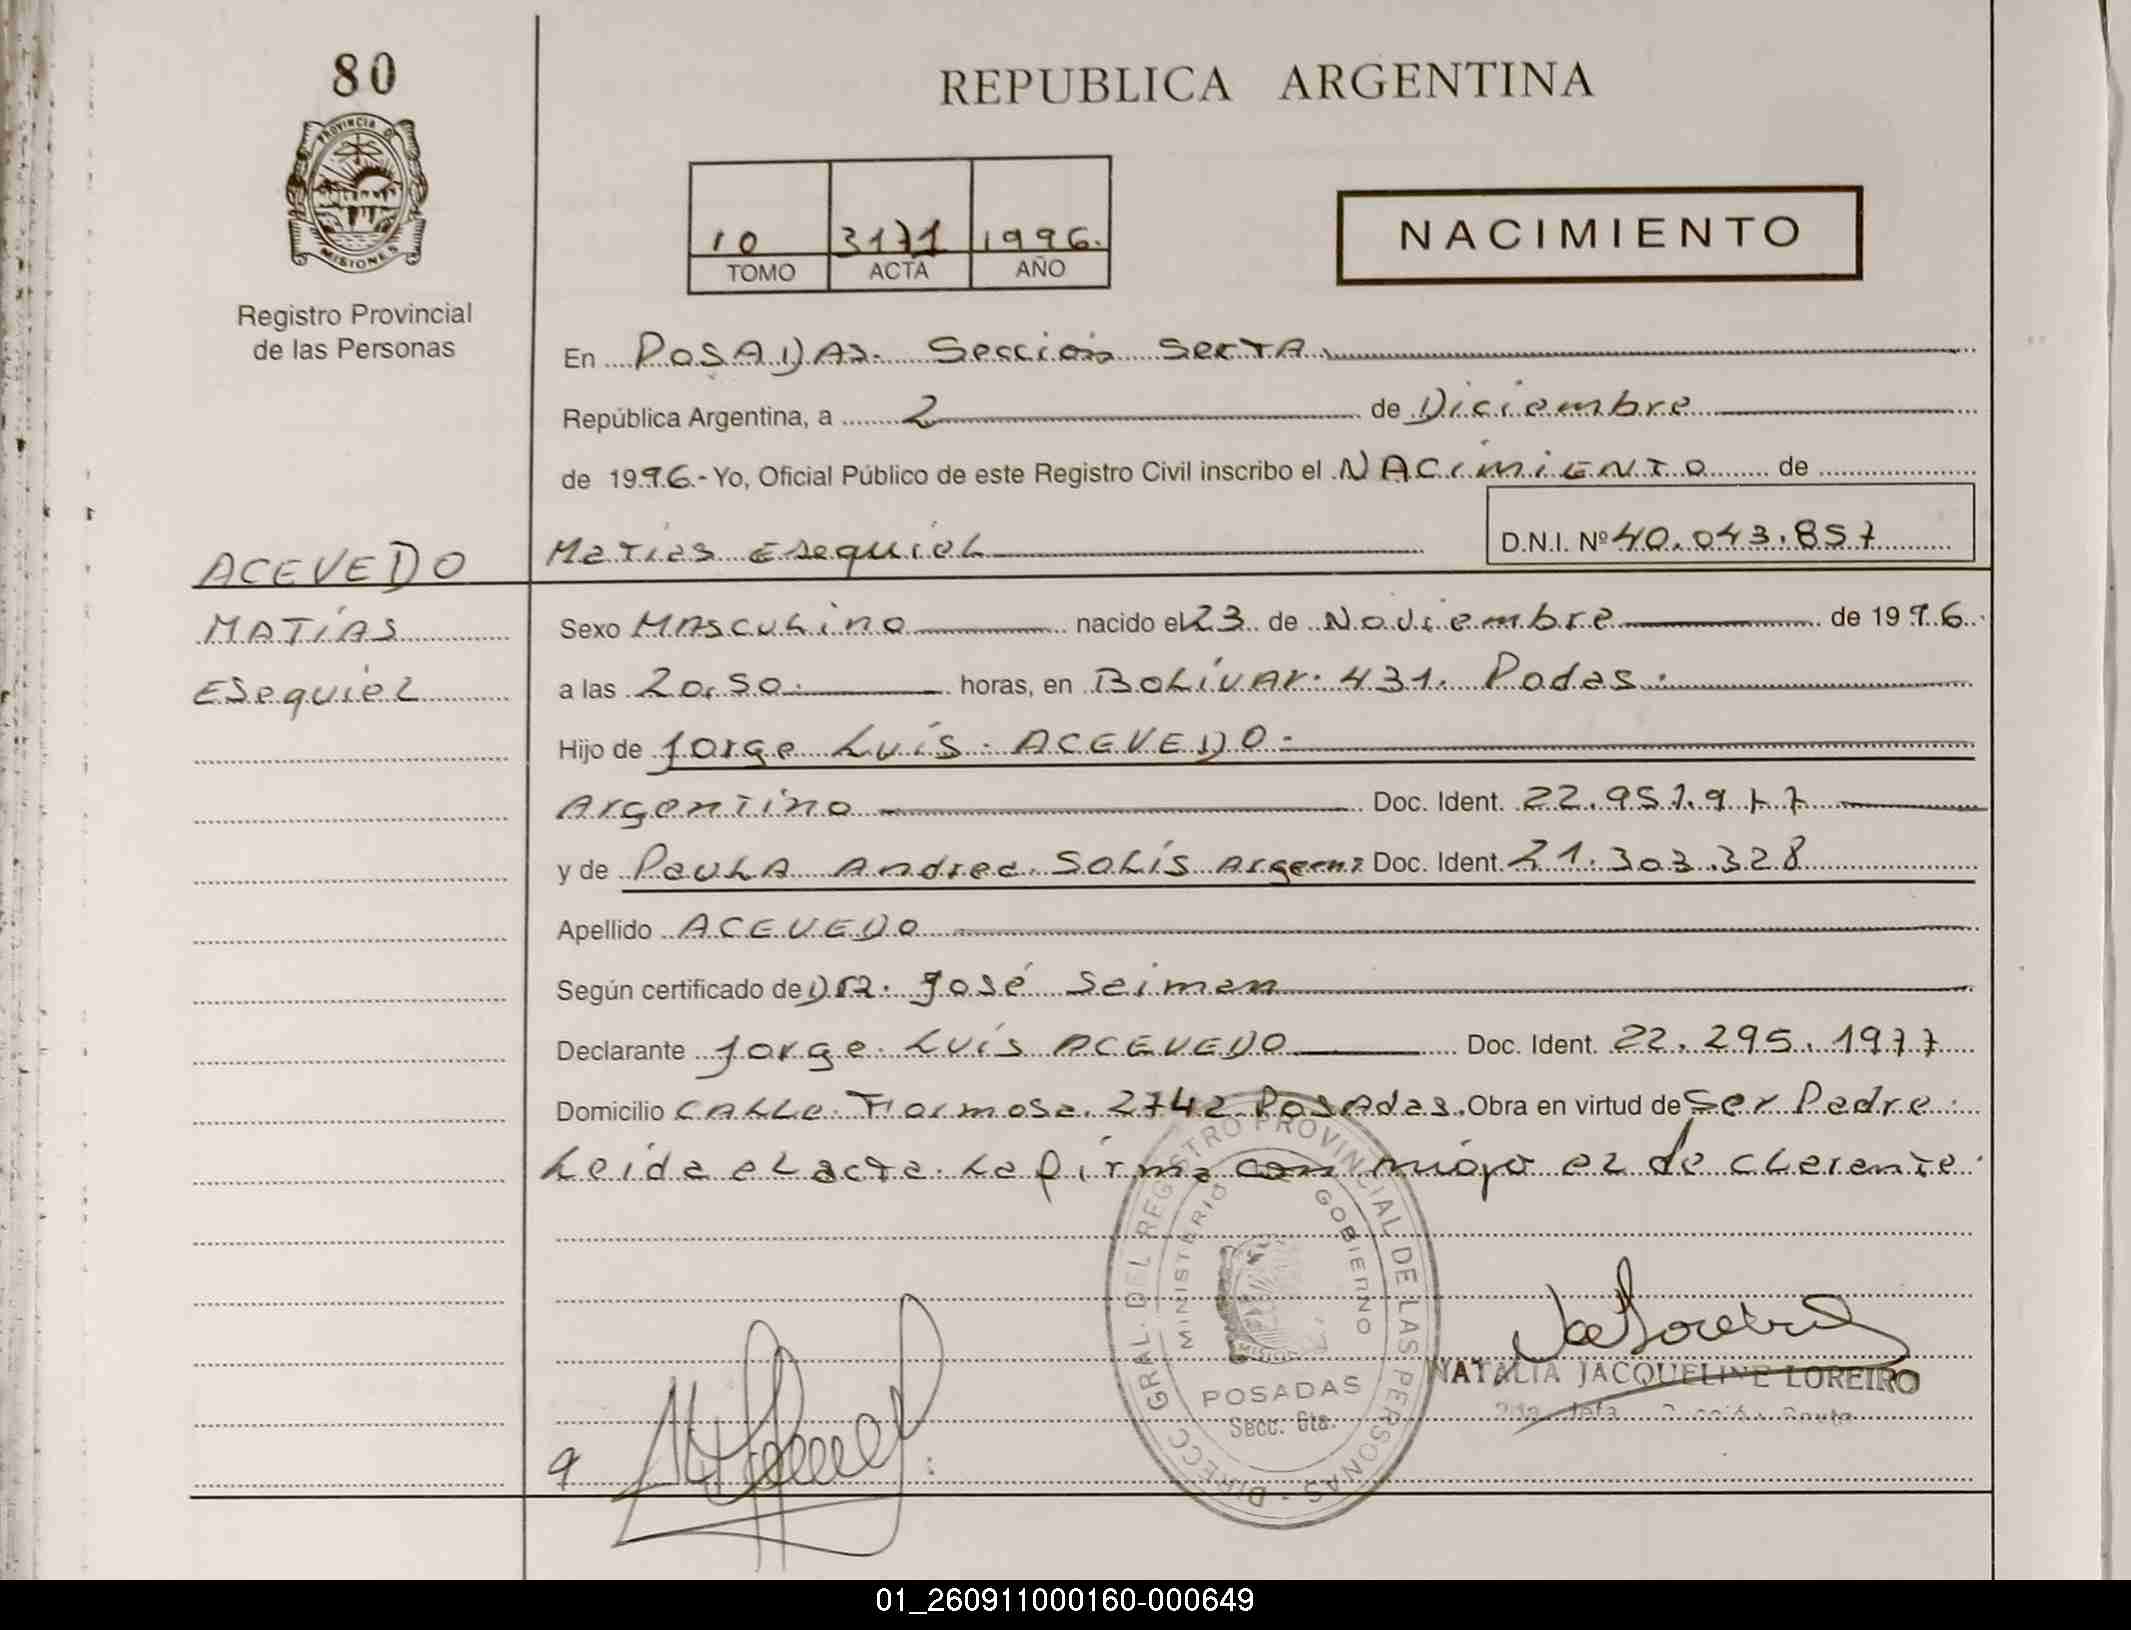 80
REPUBLICA ARGENTINA
PROVINCIA D
MISIONES
10 3171 1996.
TOMO ACTA AÑO
NACIMIENTO
Registro Provincial
de las Personas
En POSADAS. Sección Sexta
República Argentina, a 2 de Diciembre
de 1996.- Yo, Oficial Público de este Registro Civil inscribo el NACIMIENTO de
ACEVEDO
Matías Esequiel D.N.I. Nº 40.043.857
MATÍAS
Sexo Masculino nacido el 23 de Noviembre de 1996.
Esequiel
a las 20.50. horas, en Bolívar. 431. Podas.
Hijo de Jorge Luis. ACEVEDO.
Argentino Doc. Ident. 22.951.977
y de Paula Andrea. SOLÍS Argent Doc. Ident. 21.303.328
Apellido ACEVEDO
Según certificado de José Seiman
Declarante Jorge. Luis ACEVEDO Doc. Ident. 22.295.1977
Domicilio Calle Formosa. 2742 Posadas. Obra en virtud de Ser Padre.
Leída el acta. La firma con migo el de clarante.
DIRECC GRAL. DEL REGISTRO PROVINCIAL DE LAS PERSONAS
MINISTERIO GOBIERNO
POSADAS
Secc. 6ta.
NATALIA JACQUELINE LOREIRO
01_260911000160-000649